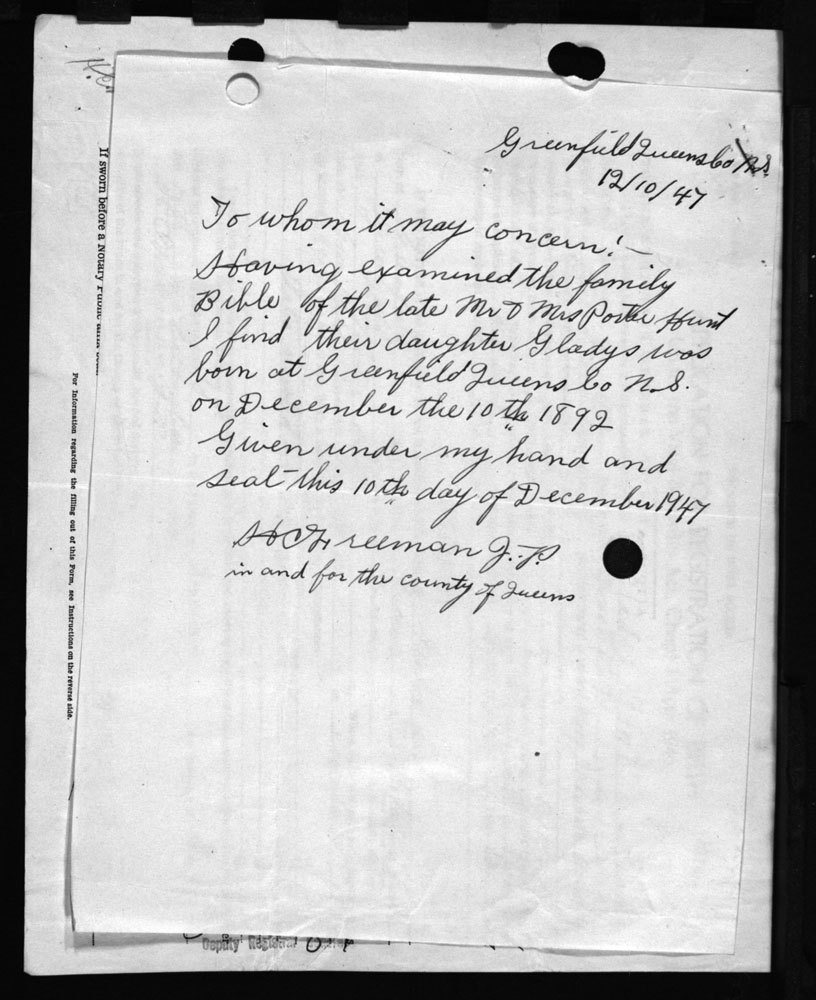 Greenfield Queens Co N.S.
12/10/47
To whom it may concern:—
Having examined the family
Bible of the late Mr & Mrs Porter Hunt
I find their daughter Gladys was
born at Greenfield Queens Co N.S.
on December the 10th 1892
Given under my hand and
seal this 10th day of December 1947
H C Freeman J.P.
in and for the county of Queens
If sworn before a Notary Public
For information regarding the filling out of this Form, see Instructions on the reverse side.
Deputy Registrar